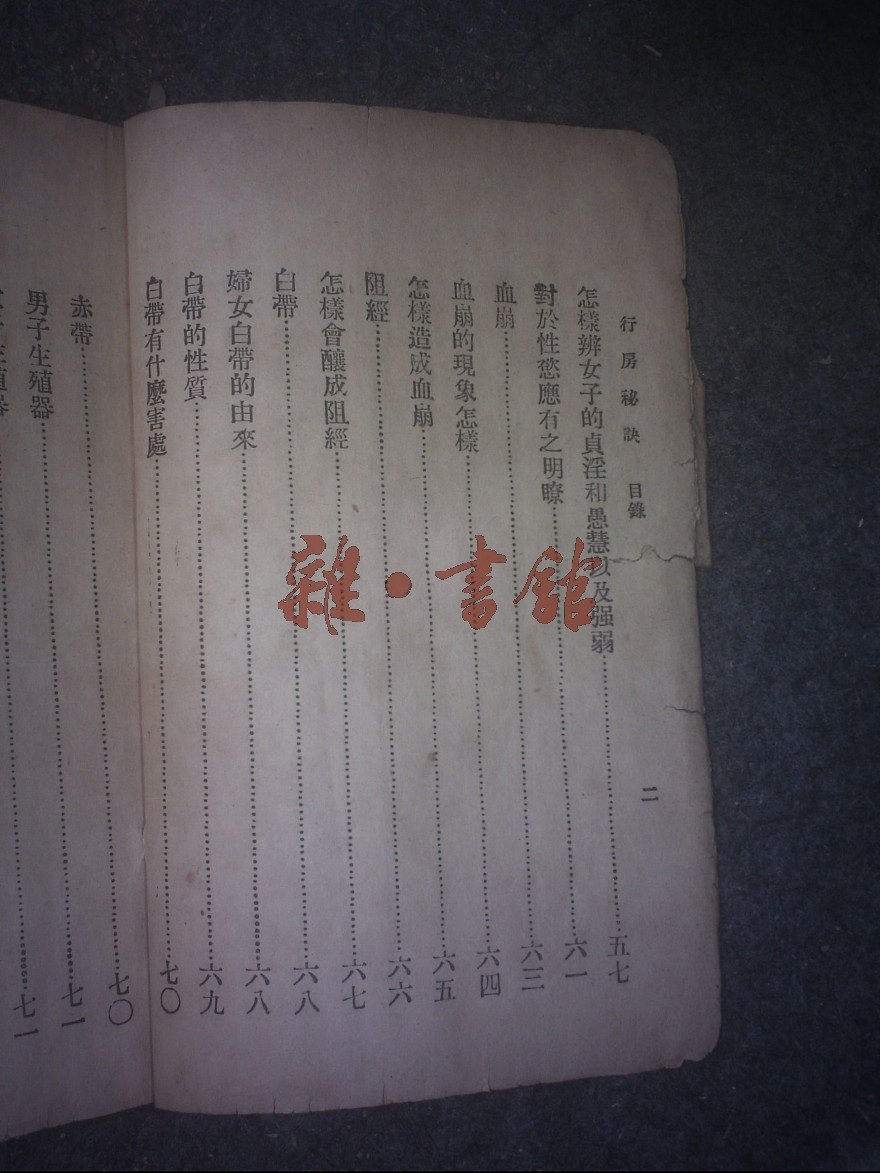 行房秘訣 目錄 二
怎樣辨女子的貞淫和愚慧以及强弱……五七
對於性慾應有之明瞭……六一
血崩……六三
血崩的現象怎樣……六四
怎樣造成血崩……六五
阻經……六六
怎樣會釀成阻經……六七
白帶……六八
婦女白帶的由來……六八
白帶的性質……六九
白帶有什麼害處……七〇
赤帶……七〇
男子生殖器……七一
殖器……七一
雜·書館